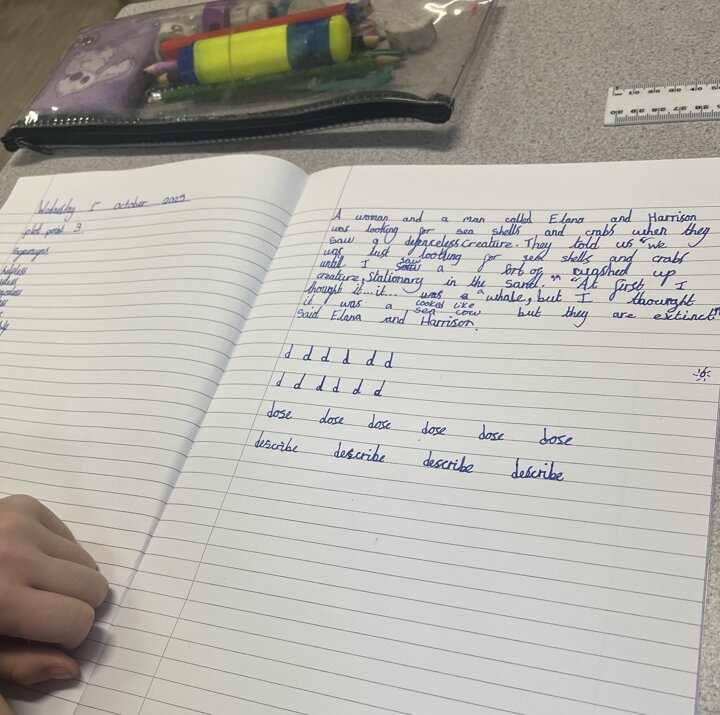 Wednesday 1st October 2025
plot point 3
Synonyms
helpless
A woman and a man called Elana and Harrison
was looking for sea shells and crabs when they
saw a defenceless creature. They told us "we
was just looking for sea shells and crabs
until I saw a sort of washed up
creature, stationary in the sand." "At first, I
thought it...it... was a whale, but I thought
it was a looked like sea cow but they are extinct"
said Elana and Harrison.
d d d d d d
d d d d d d
dose dose dose dose dose dose
describe describe describe describe